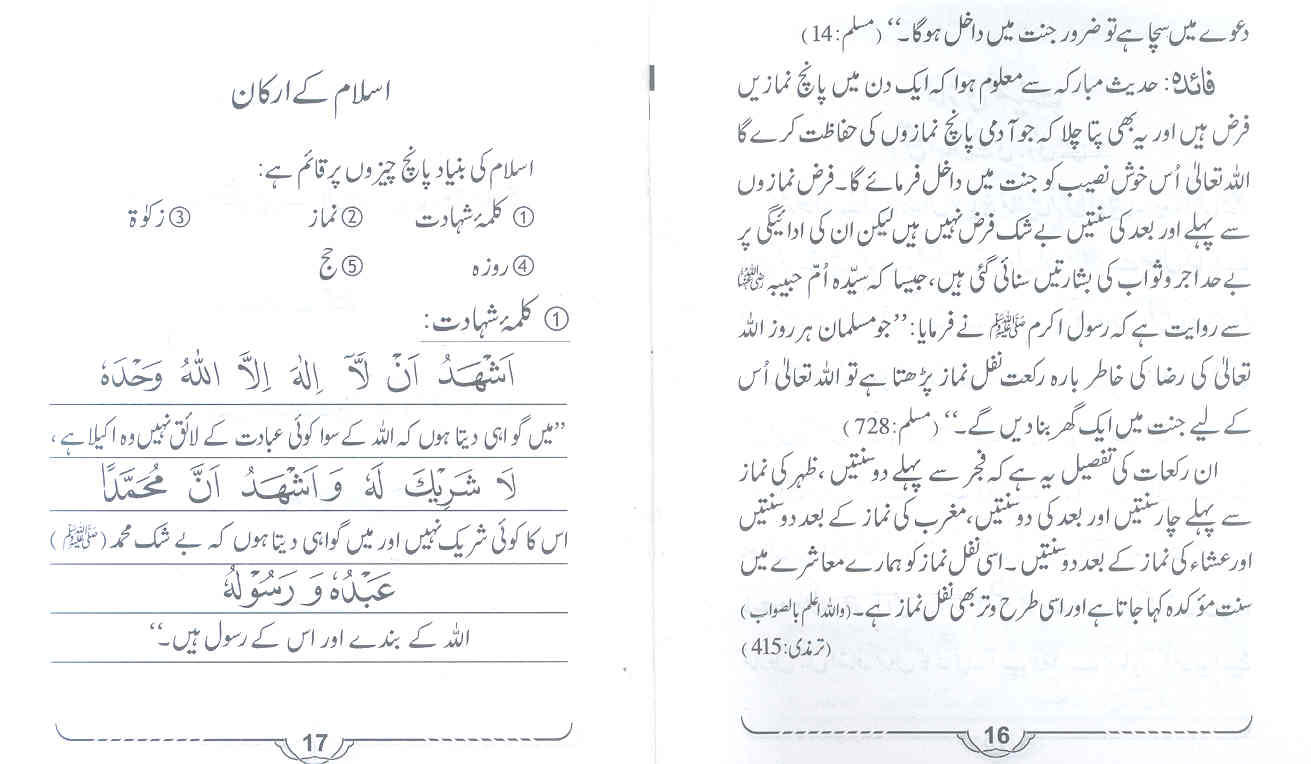 دعوے میں سچا ہے تو ضرور جنت میں داخل ہوگا۔‘‘ (مسلم:14)
فائدہ: حدیث مبارکہ سے معلوم ہوا کہ ایک دن میں پانچ نمازیں
فرض ہیں اور یہ بھی پتا چلا کہ جو آدمی پانچ نمازوں کی حفاظت کرے گا
اللہ تعالیٰ اُس خوش نصیب کو جنت میں داخل فرمائے گا۔ فرض نمازوں
سے پہلے اور بعد کی سنتیں بے شک فرض نہیں ہیں لیکن ان کی ادائیگی پر
بے حد اجر و ثواب کی بشارتیں سنائی گئی ہیں، جیسا کہ سیّدہ اُمّ حبیبہ رضی اللہ عنہا
سے روایت ہے کہ رسول اکرم ﷺ نے فرمایا: ’’جو مسلمان ہر روز اللہ
تعالیٰ کی رضا کی خاطر بارہ رکعت نفل نماز پڑھتا ہے تو اللہ تعالیٰ اُس
کے لیے جنت میں ایک گھر بنا دیں گے۔‘‘ (مسلم:728)
ان رکعات کی تفصیل یہ ہے کہ فجر سے پہلے دو سنتیں، ظہر کی نماز
سے پہلے چار سنتیں اور بعد کی دو سنتیں، مغرب کی نماز کے بعد دو سنتیں
اور عشاء کی نماز کے بعد دو سنتیں۔ اسی نفل نماز کو ہمارے معاشرے میں
سنت مؤکدہ کہا جاتا ہے اور اسی طرح وتر بھی نفل نماز ہے۔ (واللہ اعلم بالصواب)
(ترمذی:415)
16
اسلام کے ارکان
اسلام کی بنیاد پانچ چیزوں پر قائم ہے:
① کلمۂ شہادت ② نماز ③ زکوٰۃ
④ روزہ ⑤ حج
① کلمۂ شہادت:
اَشْهَدُ اَنْ لَّآ اِلٰهَ اِلَّا اللّٰهُ وَحْدَهٗ
’’میں گواہی دیتا ہوں کہ اللہ کے سوا کوئی عبادت کے لائق نہیں وہ اکیلا ہے،
لَا شَرِيْكَ لَهٗ وَاَشْهَدُ اَنَّ مُحَمَّدًا
اس کا کوئی شریک نہیں اور میں گواہی دیتا ہوں کہ بے شک محمد (ﷺ)
عَبْدُهٗ وَ رَسُوْلُهٗ
اللہ کے بندے اور اس کے رسول ہیں۔‘‘
17